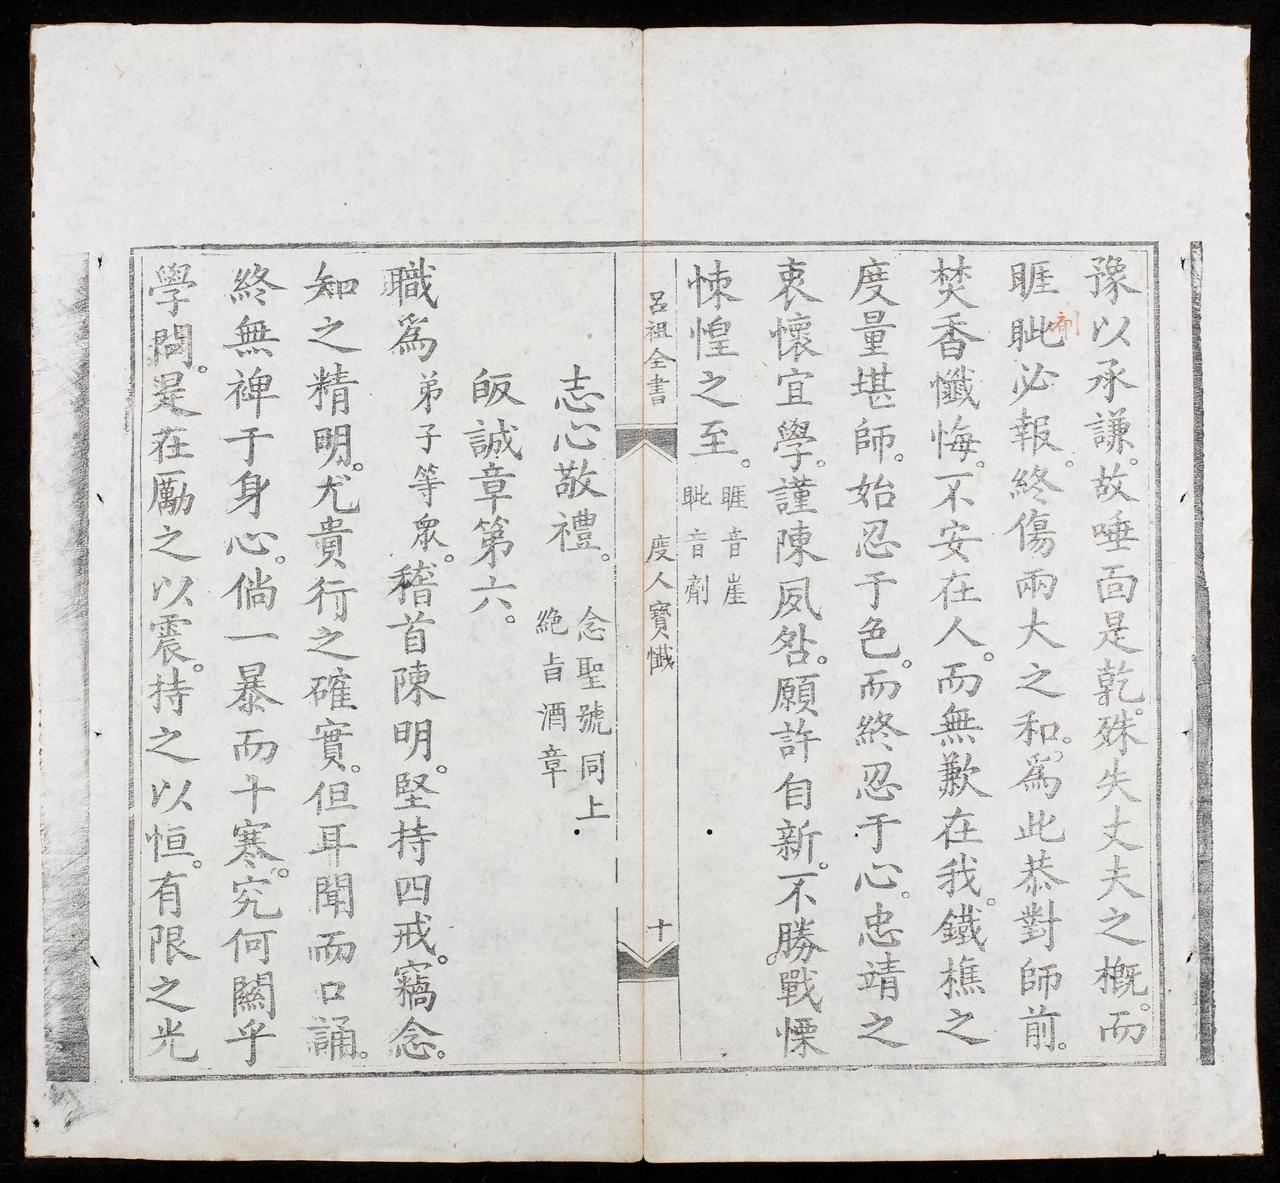 豫以承謙。故唾面是乾。殊失丈夫之概。而
睚眦必報。終傷兩大之和。爲此恭對師前。
剂
焚香懺悔。不安在人。而無歉在我。鐵樵之
度量堪師。始忍于色。而終忍于心。忠靖之
衷懷宜學。謹陳夙咎。願許自新。不勝戰慄
悚惶之至。
睚音崖
眦音劑
呂祖全書
度人寶懺
十
志心敬禮。
念聖號同上
絶旨酒章
皈誠章第六。
職爲弟子等眾。稽首陳明。堅持四戒。竊念。
知之精明。尤貴行之確實。但耳聞而口誦。
終無裨于身心。倘一暴而十寒。究何關乎
學問。是在勵之以震。持之以恒。有限之光